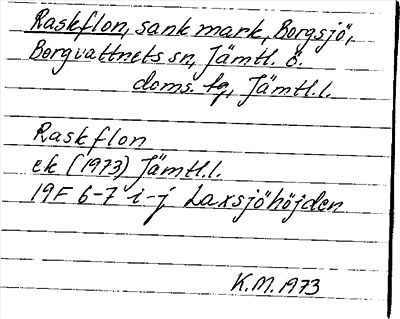 Raskflon, sank mark, Borgsjö,
Borgvattnets sn, Jämtl. ö.
doms. sg, Jämtl.l.
Raskflon
ek (1973) Jämtl.l.
19F 6-7 i-j Laxsjöhöjden
K.M. 1973